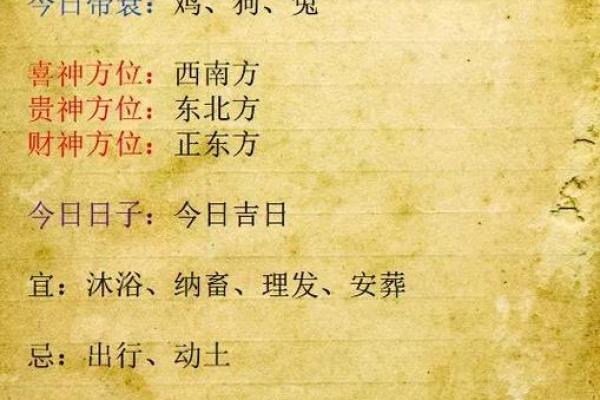 今日带衰：鸡、狗、兔
喜神方位：西南方
贵神方位：东北方
财神方位：正东方
今日日子：今日吉日
宜：沐浴、纳畜、理发、安葬
忌：出行、动土